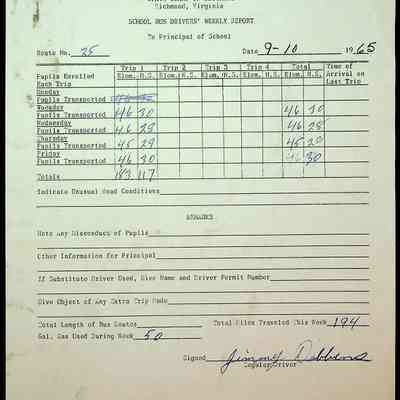 Richmond, Virginia
SCHOOL BUS DRIVERS' WEEKLY REPORT
To Principal of School
Route No. 25 Date 9-10 1965
Trip 1 Trip 2 Trip 3 Trip 4 Total Time of
Pupils Enrolled Elem. H.S. Elem. H.S. Elem. H.S. Elem. H.S. Elem. H.S. Arrival on
Each Trip Last Trip
Monday
Pupils Transported
Tuesday 46 30 46 30
Pupils Transported
Wednesday 46 28 46 28
Pupils Transported
Thursday 45 29 45 29
Pupils Transported
Friday 46 30 46 30
Pupils Transported
Totals 183 117
Indicate Unusual Road Conditions
REMARKS
Note Any Misconduct of Pupils
Other Information for Principal
If Substitute Driver Used, Give Name and Driver Permit Number
Give Object of Any Extra Trip Made
Total Length of Bus Routes Total Miles Traveled This Week 194
Gal. Gas Used During Week 50
Signed Jimmy Dobbins
Regular Driver